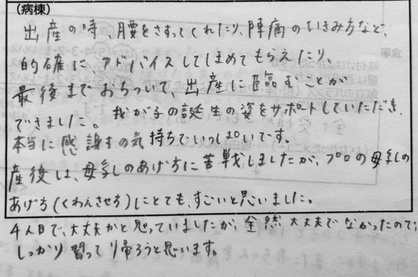 (病棟)
出産の時、腰をさすってくれたり、陣痛のいきみ方など、
的確にアドバイスしてしまめてもらえたり、
最後までおちついて、出産に臨むことが
できました。我が子の誕生の姿をサポートしていただき、
本当に感謝の気持ちでいっぱいです。
産後は、母乳のあげ方に苦戦しましたが、プロの母乳の
あげる(くわえさせる)にとても、すごいと思いました。
4人目で、大丈夫かと思っていましたが、全然大丈夫でなかったので、
しっかり習って帰ろうと思います。